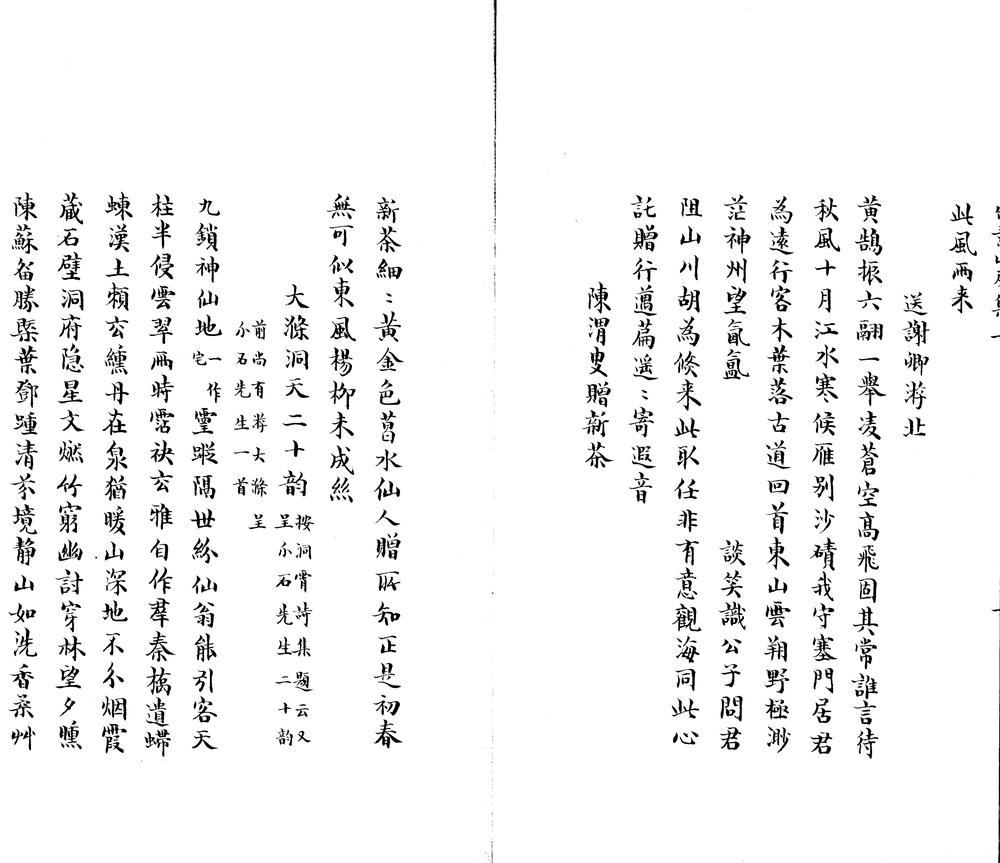 此風雨来
送謝卿游北
黄鵠振六翮一舉凌蒼空高飛固其常誰言待
秋風十月江水寒候雁别沙磧我守塞門居君
為遠行客木葉落古道回首東山雲朔野極渺
茫神州望氤氲　談笑識公子問君
阻山川胡為倏来此取任非有意觀海同此心
託贈行邁篇遥〻寄遐音
陳渭叟贈新茶
新茶細〻黄金色葛水仙人贈所知正是初春
無可似東風楊柳未成絲
大滌洞天二十韵按洞霄詩集題云又呈尒石先生二十韵
前尚有游大滌呈尒石先生一首
九鎖神仙地一作宅靈蹤隔世紛仙翁能引客天
柱半侵雲翠雨時霑袂玄雅自作羣秦橋遺
蝀漢土頼玄纁丹在泉猶暖山深地不尒烟霞
蔵石壁洞府隐星文燃竹窮幽討穿林望夕曛
陳蘇留勝槩葉鄧踵清芬境静山如洗香柔艸